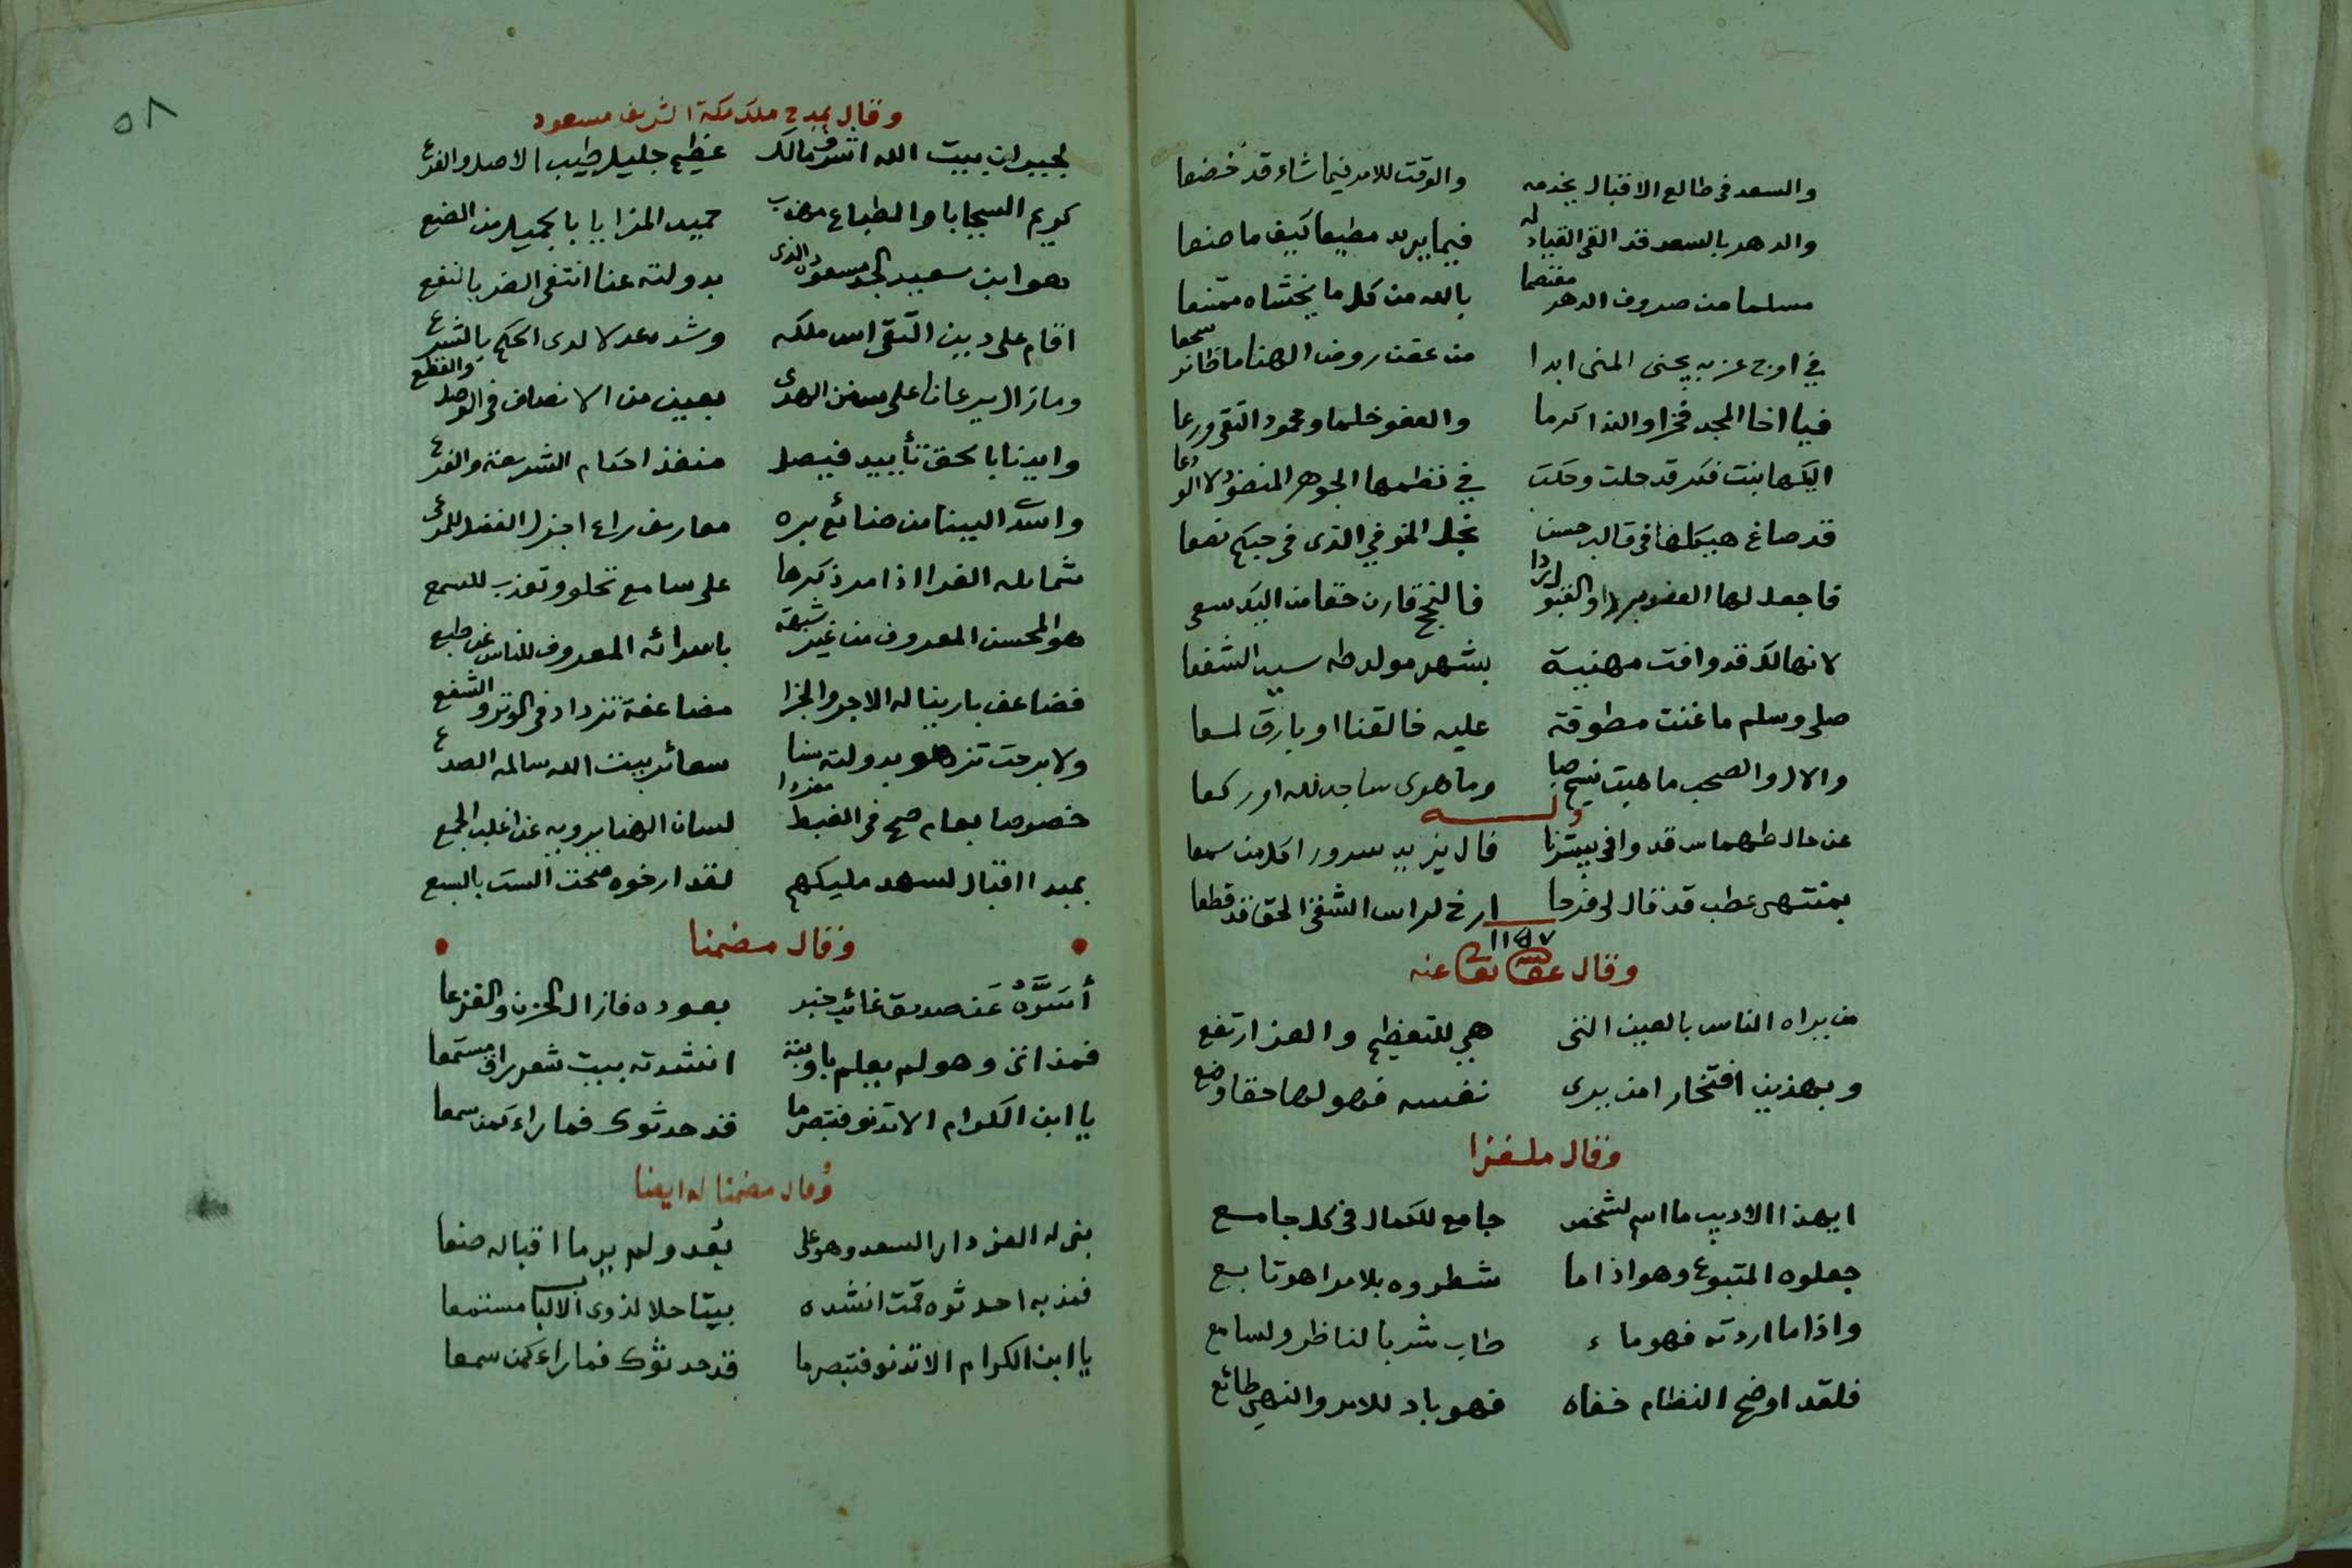 والسعد فى طالع الاقبال يخدمه والوقت للامر فيما شاء قد خضعا
والدهر بالسعد قد القى القياد له فيما يريد مطيعا كيف ما صنعا
مسلما من صروف الدهر معتصما بالله من كل ما يخشاه ممتنعا
في اوج عز به يجنى المنى ابدا من غصن روض الهنا ما طائر سجعا
فيا اخا المجد فخرا والندا كرما والعفو حلما ومحمود التقى ورعا
اليكها بنت فكر قد حلت وحكت في نظمها الجوهر المنضود لا الودعا
قد صاغ هيكلها فى قالب حسن نجل الخوفي الذى فى حبكم نصعا
فاجعل لها العفو مهرا والقبول ردا فالنجح قارن حقا من اليك سعى
لانها لك قد وافت مهنية بشهر مولد طه سيد الشفعا
صلى وسلم ما غنت مطوقة عليه خالقنا او بارق لمعا
والال والصحب ما هبت نسيم صبا وما هوى ساجد لله او ركعا
وله
عن حال طهماس قد وافى يبشرنا فال يزيد سرورا كل من سمعا
بمنتهى عطب قد قال لى فرحا ارخ لراس الشقى الحق قد قطعا
١١٥٧
وقال عفا الله تعالى عنه
من يراه الناس بالعين التى هي للتعظيم والعز ارتفع
وبهذين افتخارا من يرى نفسه فهو لها حقا وضع
وقال ملغزا
ايهذا الاديب ما اسم لشخص جامع للكمال فى كل جامع
جعلوه المتبوع وهو اذا ما شطروه بلا مرا هو تابع
واذا ما اردته فهو ماء طاب شربا لناظر ولسامع
فلقد اوضح النظام خفاه فهو باد للامر والنهى طائع
٥٨
وقال يمدح ملك مكة الشريف مسعود
لجيران بيت الله اشرف مالك عظيم جليل طيب الاصل والفرع
كريم السجايا والطباع مهذب حميد المزايا بالجميل من الصنع
هو ابن سعيد الجد مسعود الذى بدولته عنا انتفى الضر بالنفع
اقام على دين التقى اس ملكه وشد عدلا لدى الحكم بالشرع
وما زال يرعانا على سنن الهدى بعين من الانصاف فى الوصل والقطع
وايدنا بالحق تأييد فيصل منفذ احكام الشريعة والفرع
واسدى الينا من صنائع بره معارف راع اجزل الفضل للمرعى
شمائله الغرا اذا مر ذكرها على سامع تحلو وتعذب للسمع
هو المحسن المعروف من غير شبهة باسدائه المعروف للناس عن طبع
فضاعف يا ربنا له الاجر والجزا مضاعفة تزداد فى الوتر والشفع
ولا برحت تزهو بدولته سنا سعائر بيت الله سالمه الصدع
خصوصا بعام صح فى الضبط مفردا لسان الهنا يرويه عن اغلب الجمع
بمبدا اقبال لسعد مليكهم لقد ارخوه منحت الست بالسبع
وقال مضمنا
أسرَّهُ عَن صديق غائب خبر بعوده فازال الحزن والفزعا
فمذ اتى وهو لم يعلم باوبته انشدته بيت شعر راق مستمعا
يا ابن الكرام الا تدنو فتبصر ما قد حدثوك فما راء كمن سمعا
وقال مضمنا له ايضا
بنى له العز دار السعد وهو على بُعد ولم ير ما اقباله صنعا
فمذ به احدثوه قمت انشده بيتا حلا لذوى الالباب مستمعا
يا ابن الكرام الا تدنو فتبصر ما قد حدثوك فما راء كمن سمعا